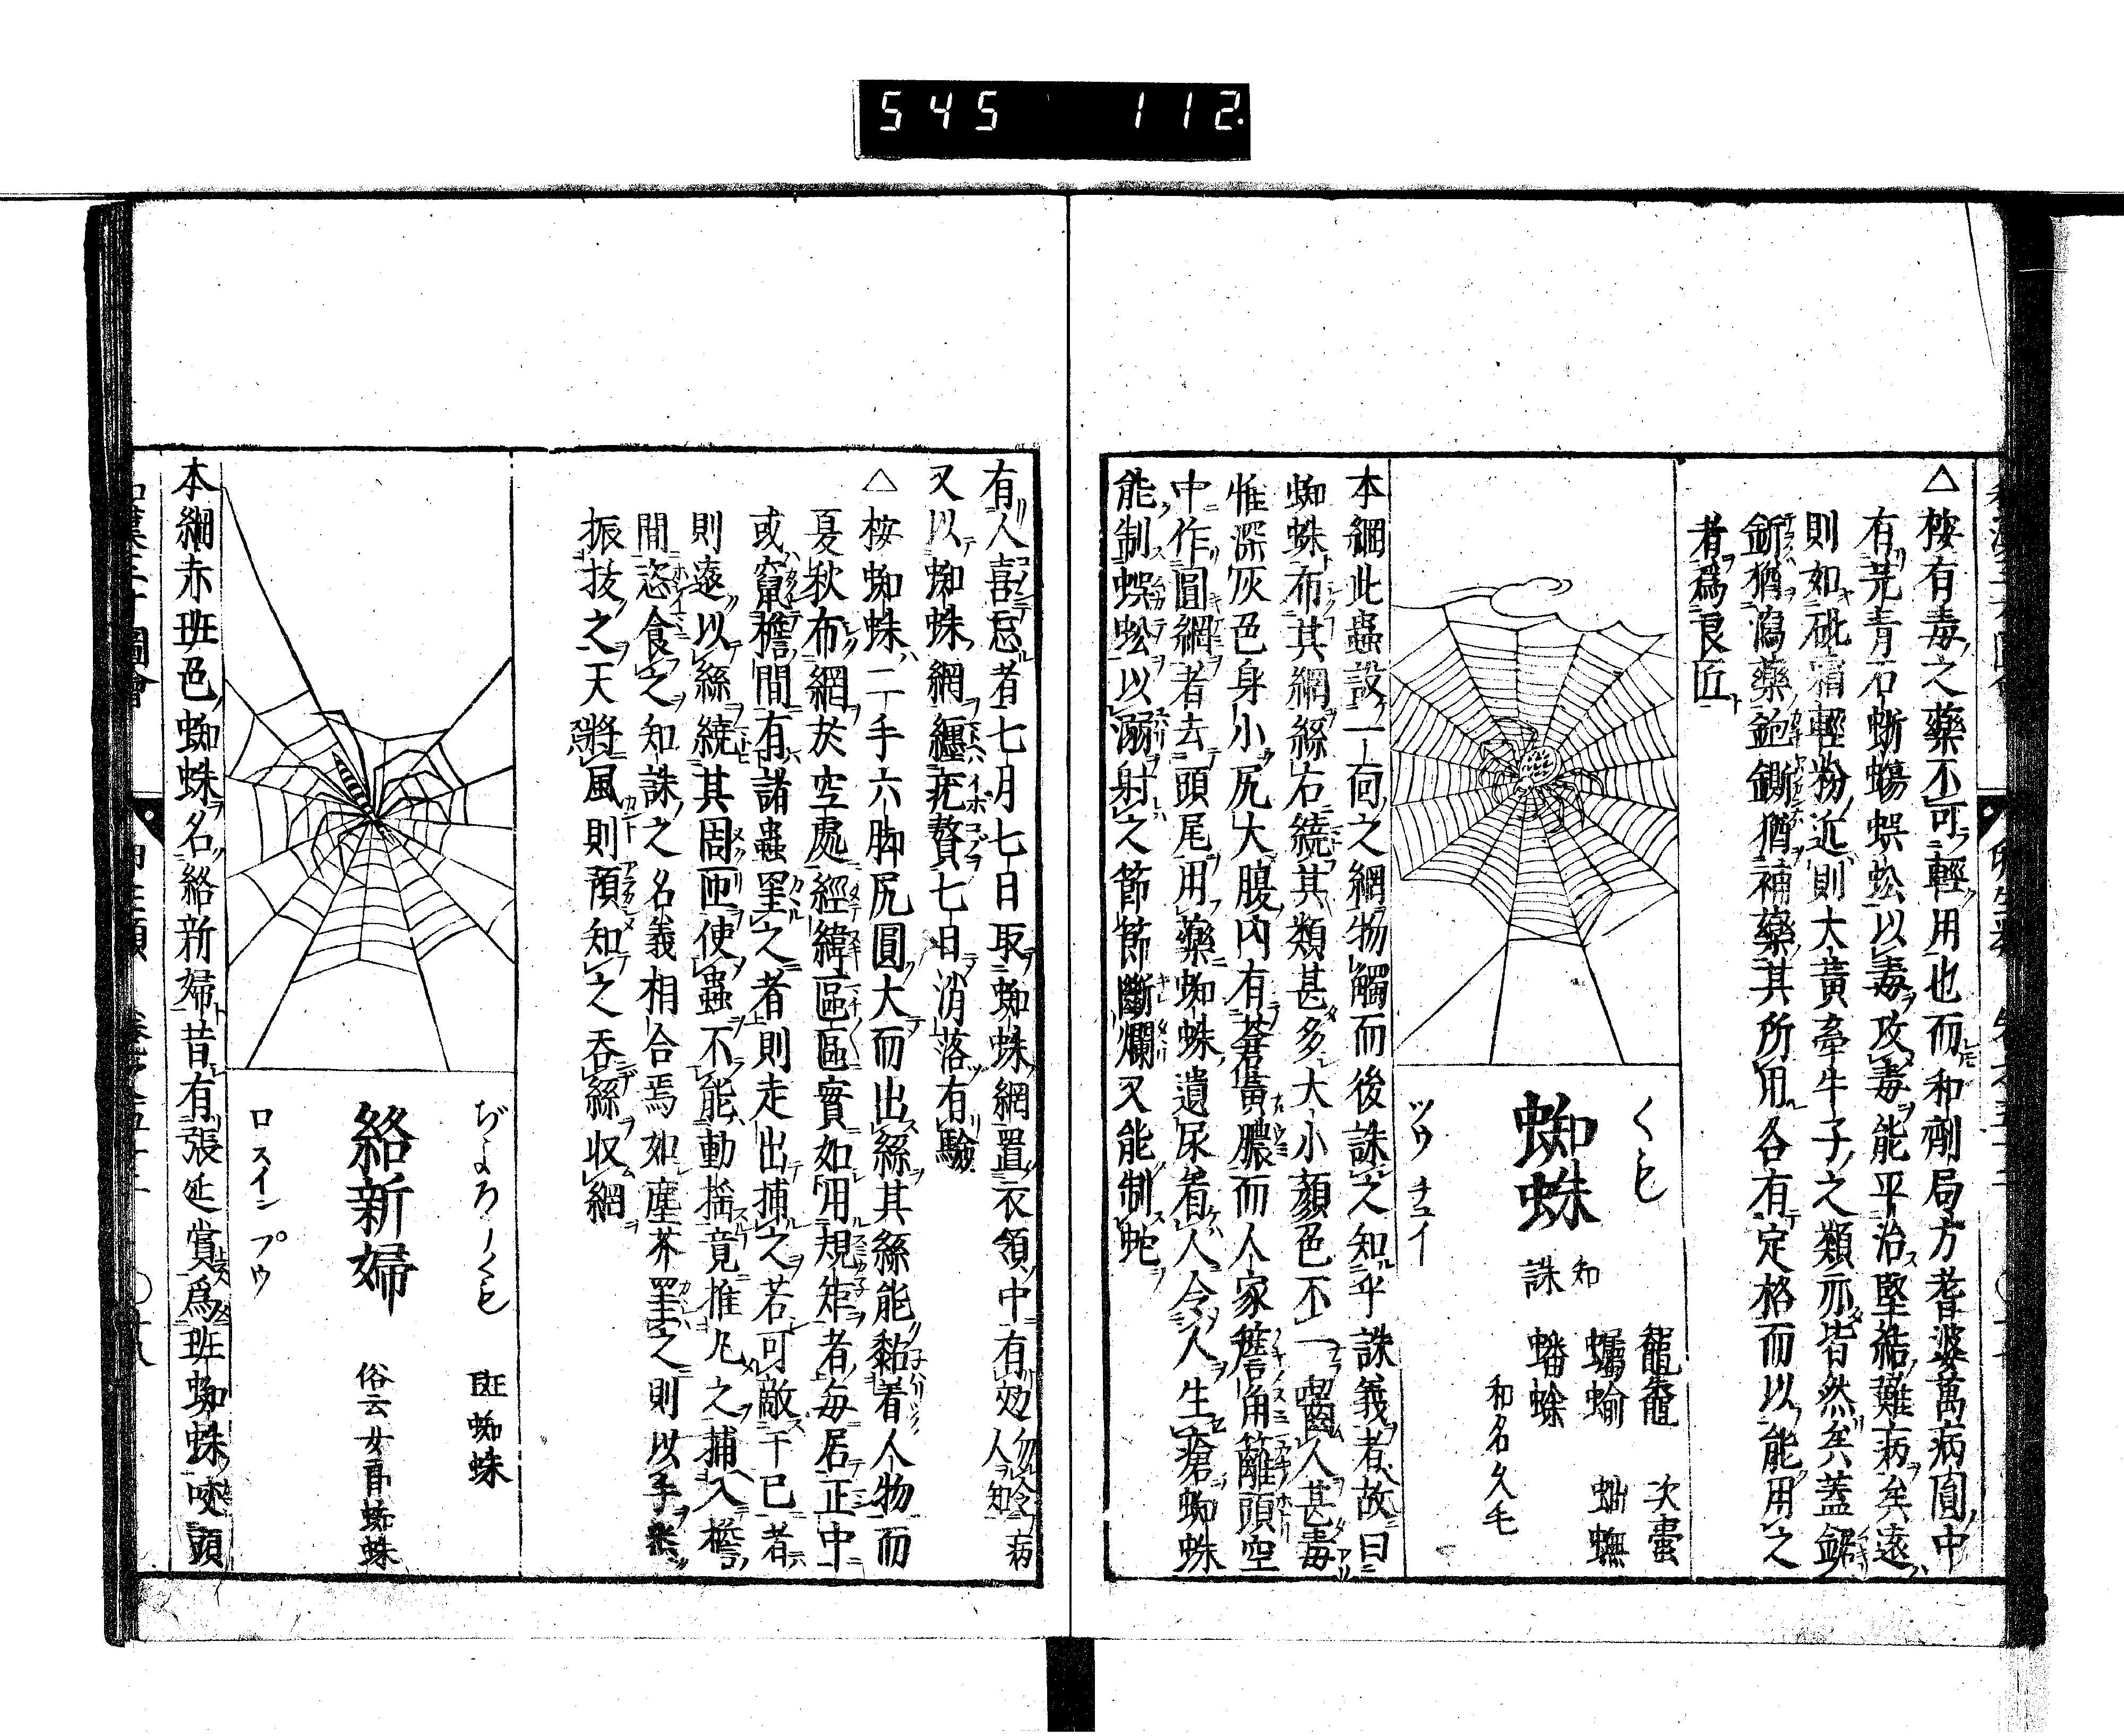 545 112
△桉有毒之藥不可輕用也而和劑局方耆婆萬病圓中
有芫青石蜥蜴蜈蚣以毒攻毒能平治堅結難病矣遠
則如砒霜輕粉近則大黃牽牛子之類亦皆然矣蓋鋸
釿猶瀉藥鉋鐁猶補藥其所用各有定格而以能用之
者爲良匠
くも
蜘蛛
知 誅
ツウ チユイ
鼅鼄 次蟗
蠾蝓 䖦蟱
蟠蜍
和名久毛
本綱此蟲設一面之網物觸而後誅之知乎誅義者故曰
蜘蛛布其網絲右繞其類甚多大小顏色不一囓人甚毒
惟深灰色身小尻大腹內有蒼黃膿而人家簷角籬頭空
中作圓網者去頭尾用藥蜘蛛遺尿着人令人生瘡蜘蛛
能制蜈蚣以溺射之節節斷爛又能制蛇
有人喜忘者七月七日取蜘蛛網置衣領中有効勿令病人知
又以蜘蛛網纏疣贅七日消落有驗
△桉蜘蛛二手六脚尻圓大而出絲其絲能黏着人物而
夏秋布網於空處經緯區區實如用規矩者每居正中
或竄檐間有諸蟲罣之者則走出捕之若可敵于己者
則遠以絲繞其周匝使蟲不能動搖竟推凡之捕入檐
間恣食之知誅之名義相合焉如塵芥罣之則以手
振抜之天將風則預知之吞絲収網
ぢよろうくも
絡新婦
ロスイン プウ
斑蜘蛛
俗云女郎蜘蛛
本綱赤班色蜘蛛名絡新婦昔有張延賞爲班蜘蛛咬頭